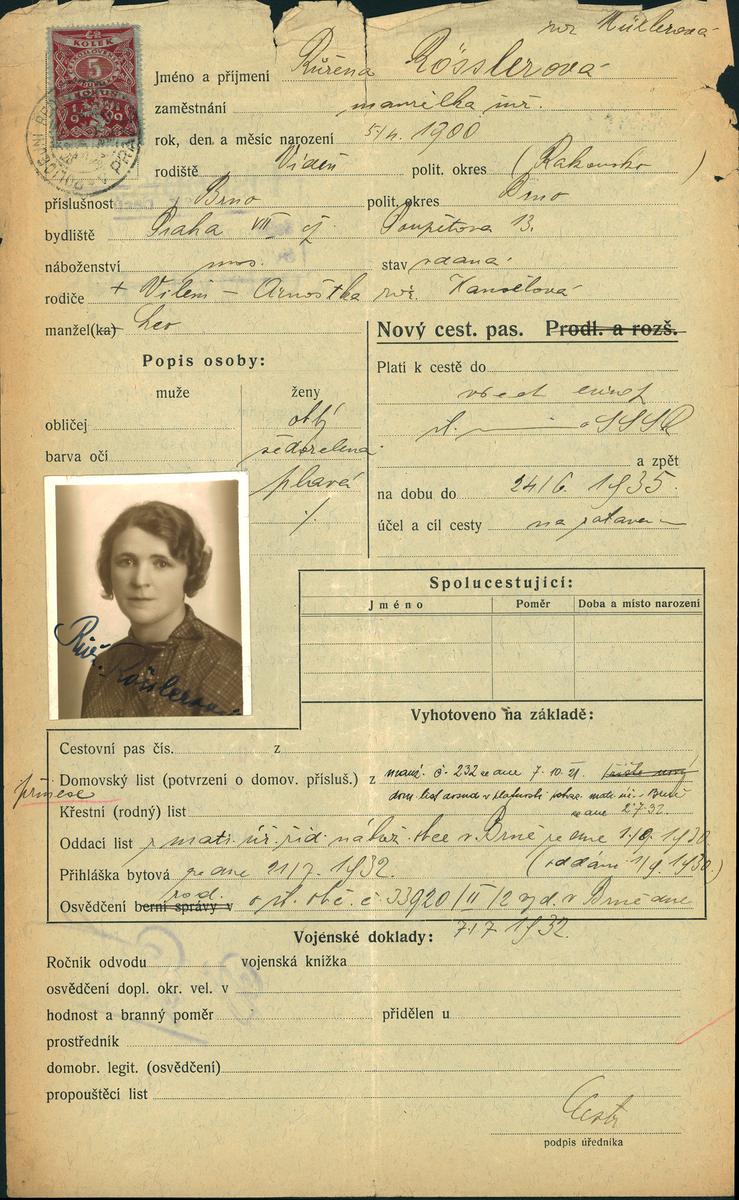 roz Müllerová
KOLEK
5
Jméno a příjmení Růžena Rösslerová
zaměstnání manželka inž.
rok, den a měsíc narození 5/4. 1900
rodiště Vídeň polit. okres (Rakousko)
příslušnost Brno polit. okres Brno
bydliště Praha VII čj. 13.
náboženství mos. stav vdaná
rodiče + Vilém – Arnoštka roz.
manžel(ka) Leo
Nový cest. pas. Prodl. a rozš.
Popis osoby:
Platí k cestě do
muže ženy
obličej oblý
barva očí šedozelená
plavá
/.
SSSR
a zpět
na dobu do 24/6. 1935.
účel a cíl cesty na
Růž. Rösslerová
Spolucestující:
Jméno Poměr Doba a místo narození
Vyhotoveno na základě:
Cestovní pas čís. z
Domovský list (potvrzení o domov. přísluš.) z č. 232 ze dne 7. 10. 21.
přinese
Křestní (rodný) list ze dne 2.7.32.
Oddací list z mat. úř. žid. nábož. obce v Brně ze dne 1./9. 1930.
Přihláška bytová ze dne 21/7. 1932. (oddáni 1/9. 1930.)
Osvědčení berní správy v o st. obč. č. 33920/II/2 vyd. v Brně dne
7.7. 1932.
Vojenské doklady:
Ročník odvodu vojenská knížka
osvědčení dopl. okr. vel. v
hodnost a branný poměr přidělen u
prostředník
domobr. legit. (osvědčení)
propouštěcí list
podpis úředníka